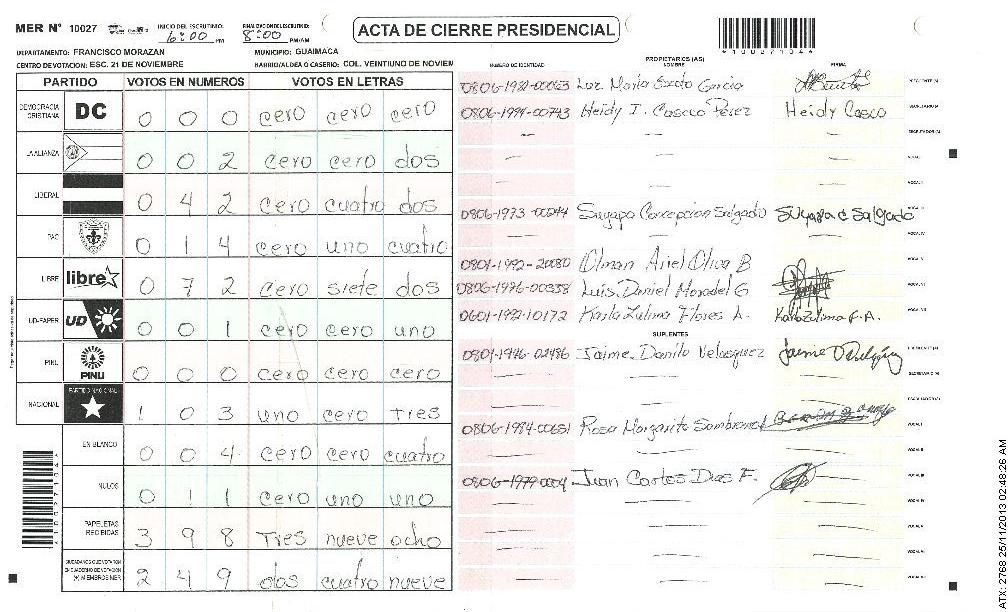 MER N° 10027 INICIO DEL ESCRUTINIO: 6:00 PM FINALIZACION ESCRUTINIO: 8:00 PM/AM
ACTA DE CIERRE PRESIDENCIAL
DEPARTAMENTO: FRANCISCO MORAZAN MUNICIPIO: GUAIMACA
CENTRO DE VOTACION: ESC. 21 DE NOVIEMBRE BARRIO/ALDEA O CASERIO: COL. VEINTIUNO DE NOVIEM
PARTIDO VOTOS EN NUMEROS VOTOS EN LETRAS
DEMOCRACIA CRISTIANA DC 0 0 0 cero cero cero
LA ALIANZA 0 0 2 cero cero dos
LIBERAL 0 4 2 cero cuatro dos
PAC 0 1 4 cero uno cuatro
LIBRE libre 0 7 2 cero siete dos
UD-FAPER UD 0 0 1 cero cero uno
PINU PINU 0 0 0 cero cero cero
NACIONAL PARTIDO NACIONAL 1 0 3 uno cero tres
EN BLANCO 0 0 4 cero cero cuatro
NULOS 0 1 1 cero uno uno
PAPELETAS RECIBIDAS 3 9 8 Tres nueve ocho
CIUDADANOS QUE VOTARON EN CUADERNO DE VOTACION (+) MIEMBROS MER 2 4 9 dos cuatro nueve
PROPIETARIOS (AS)
NUMERO DE IDENTIDAD NOMBRE FIRMA
Luz Maria
Heidy I. Casco Perez Heidy Casco
Suyapa Concepcion Salgado Suyapa C Salgado
0801-1992-20080 Olman Ariel Oliva B
0806-1976-00338 Luis Daniel Moradel G
0601-1992-10172 Karla Zulima Flores L. Karla Zulima F.A.
SUPLENTES
Jaime Danilo Velasquez
0806-1984-00651 Rosa Margarita
Juan Carlos Dias F.
ATX: 2768 25/11/2013 02:48:26 AM